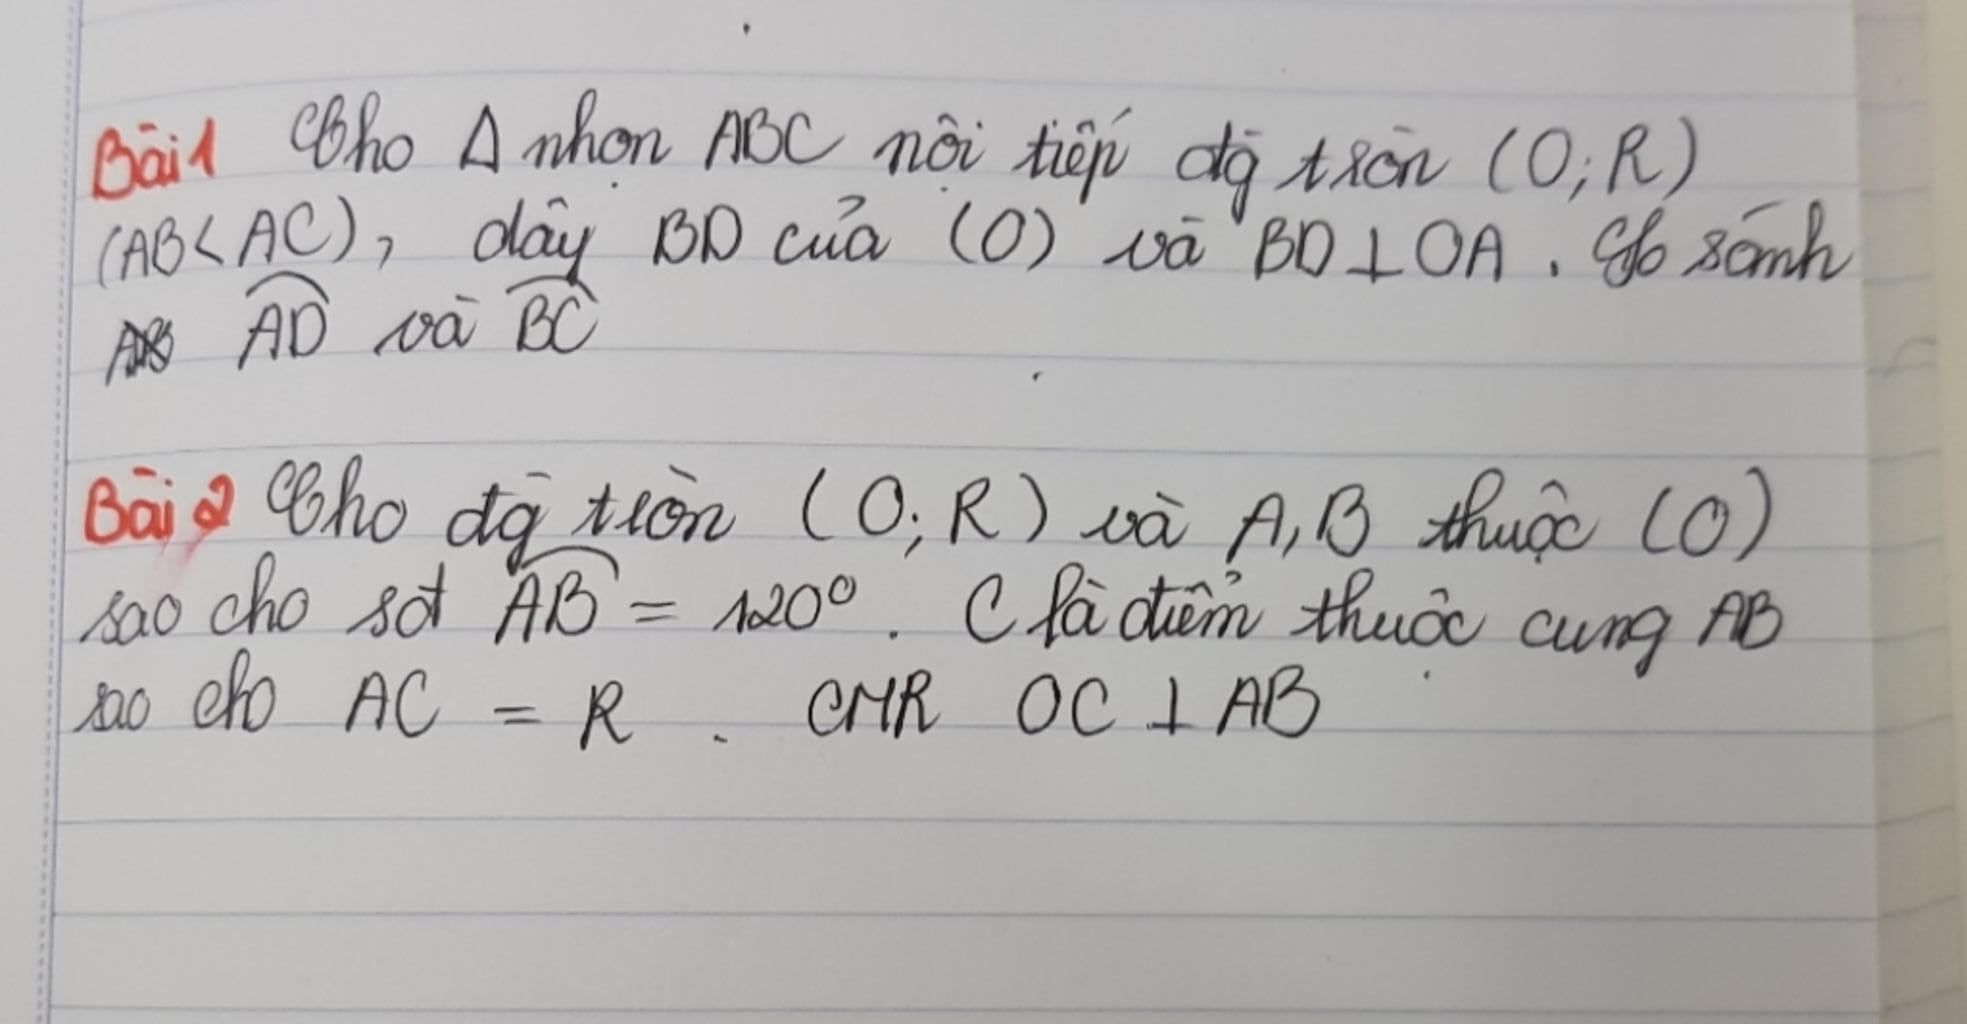 Bài 1 Cho Δ nhọn ABC nội tiếp đg tròn (O; R)
(AB < AC), dây BD của (O) và BD ⊥ OA. So sánh
AD và BC
Bài 2 Cho đg tròn (O; R) và A, B thuộc (O)
sao cho sđ AB = 120°. C là điểm thuộc cung AB
sao cho AC = R. CMR OC ⊥ AB